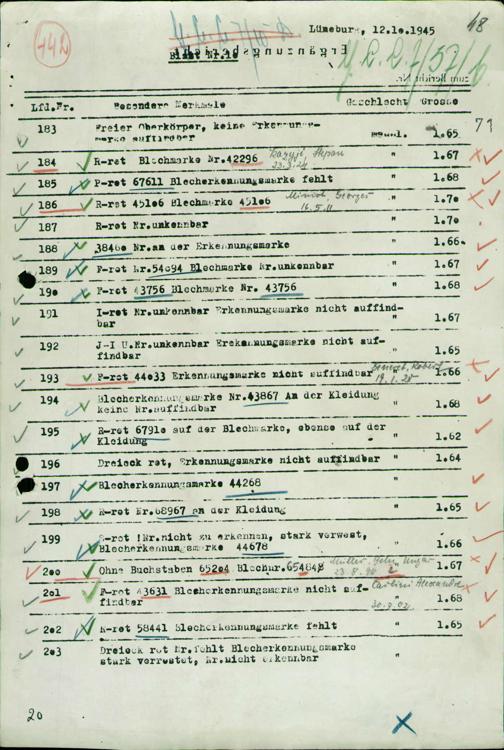 142
48
Lüneburg, 12.1o.1945
Blatt Nr.1o
Ergänzungsbericht
zum Bericht Nr.
Lfd.Nr. Besondere Merkmale Geschlecht Grosse
71
183 Freier Oberkörper, keine Erkennungs-
marke auffindbar männl. 1.65
184 R-rot Blechmarke Nr.42296 " 1.67
185 P-rot 67611 Blecherkennungsmarke fehlt " 1.68
186 R-rot 451o6 Blechmarke 451o6 " 1.7o
16.5.11
187 R-rot Nr.unkennbar " 1.7o
188 3846o Nr.an der Erkennungsmarke " 1.66
189 F-rot Nr.54o94 Blechmarke Nr.unkennbar " 1.67
19o F-rot 43756 Blechmarke Nr. 43756 " 1.68
191 I-rot Nr.unkennbar Erkennungsmarke nicht auffind-
bar " 1.67
192 J-I U.Nr.unkennbar Erekannungsmarke nicht auf-
findbar " 1.65
193 F-rot 44o33 Erkennungsmarke nicht auffindbar " 1.66
194 Blecherkennungsmarke Nr.43867 An der Kleidung
keine Nr.auffindbar " 1.68
195 R-rot 6791o auf der Blechmarke, ebenso auf der
Kleidung " 1.62
196 Dreieck rot, Erkennungsmarke nicht auffindbar " 1.64
197 Blecherkennungsmarke 44268 "
198 R-rot Nr.68967 an der Kleidung " 1.65
199 R-rot !Nr.nicht zu erkennen, stark verwest,
Blecherkennungsmarke 44678 " 1.66
2oo Ohne Buchstaben 652o4 Blechnr.654848 " 1.67
2o1 F-rot 43631 Blecherkennungsmarke nicht auf-
findbar " 1.68
2o2 R-rot 58441 Blecherkennungsmarke fehlt " 1.65
2o3 Dreieck rot Nr.fehlt Blecherkennungsmarke
stark verrostet, Nr.nicht erkennbar "
20